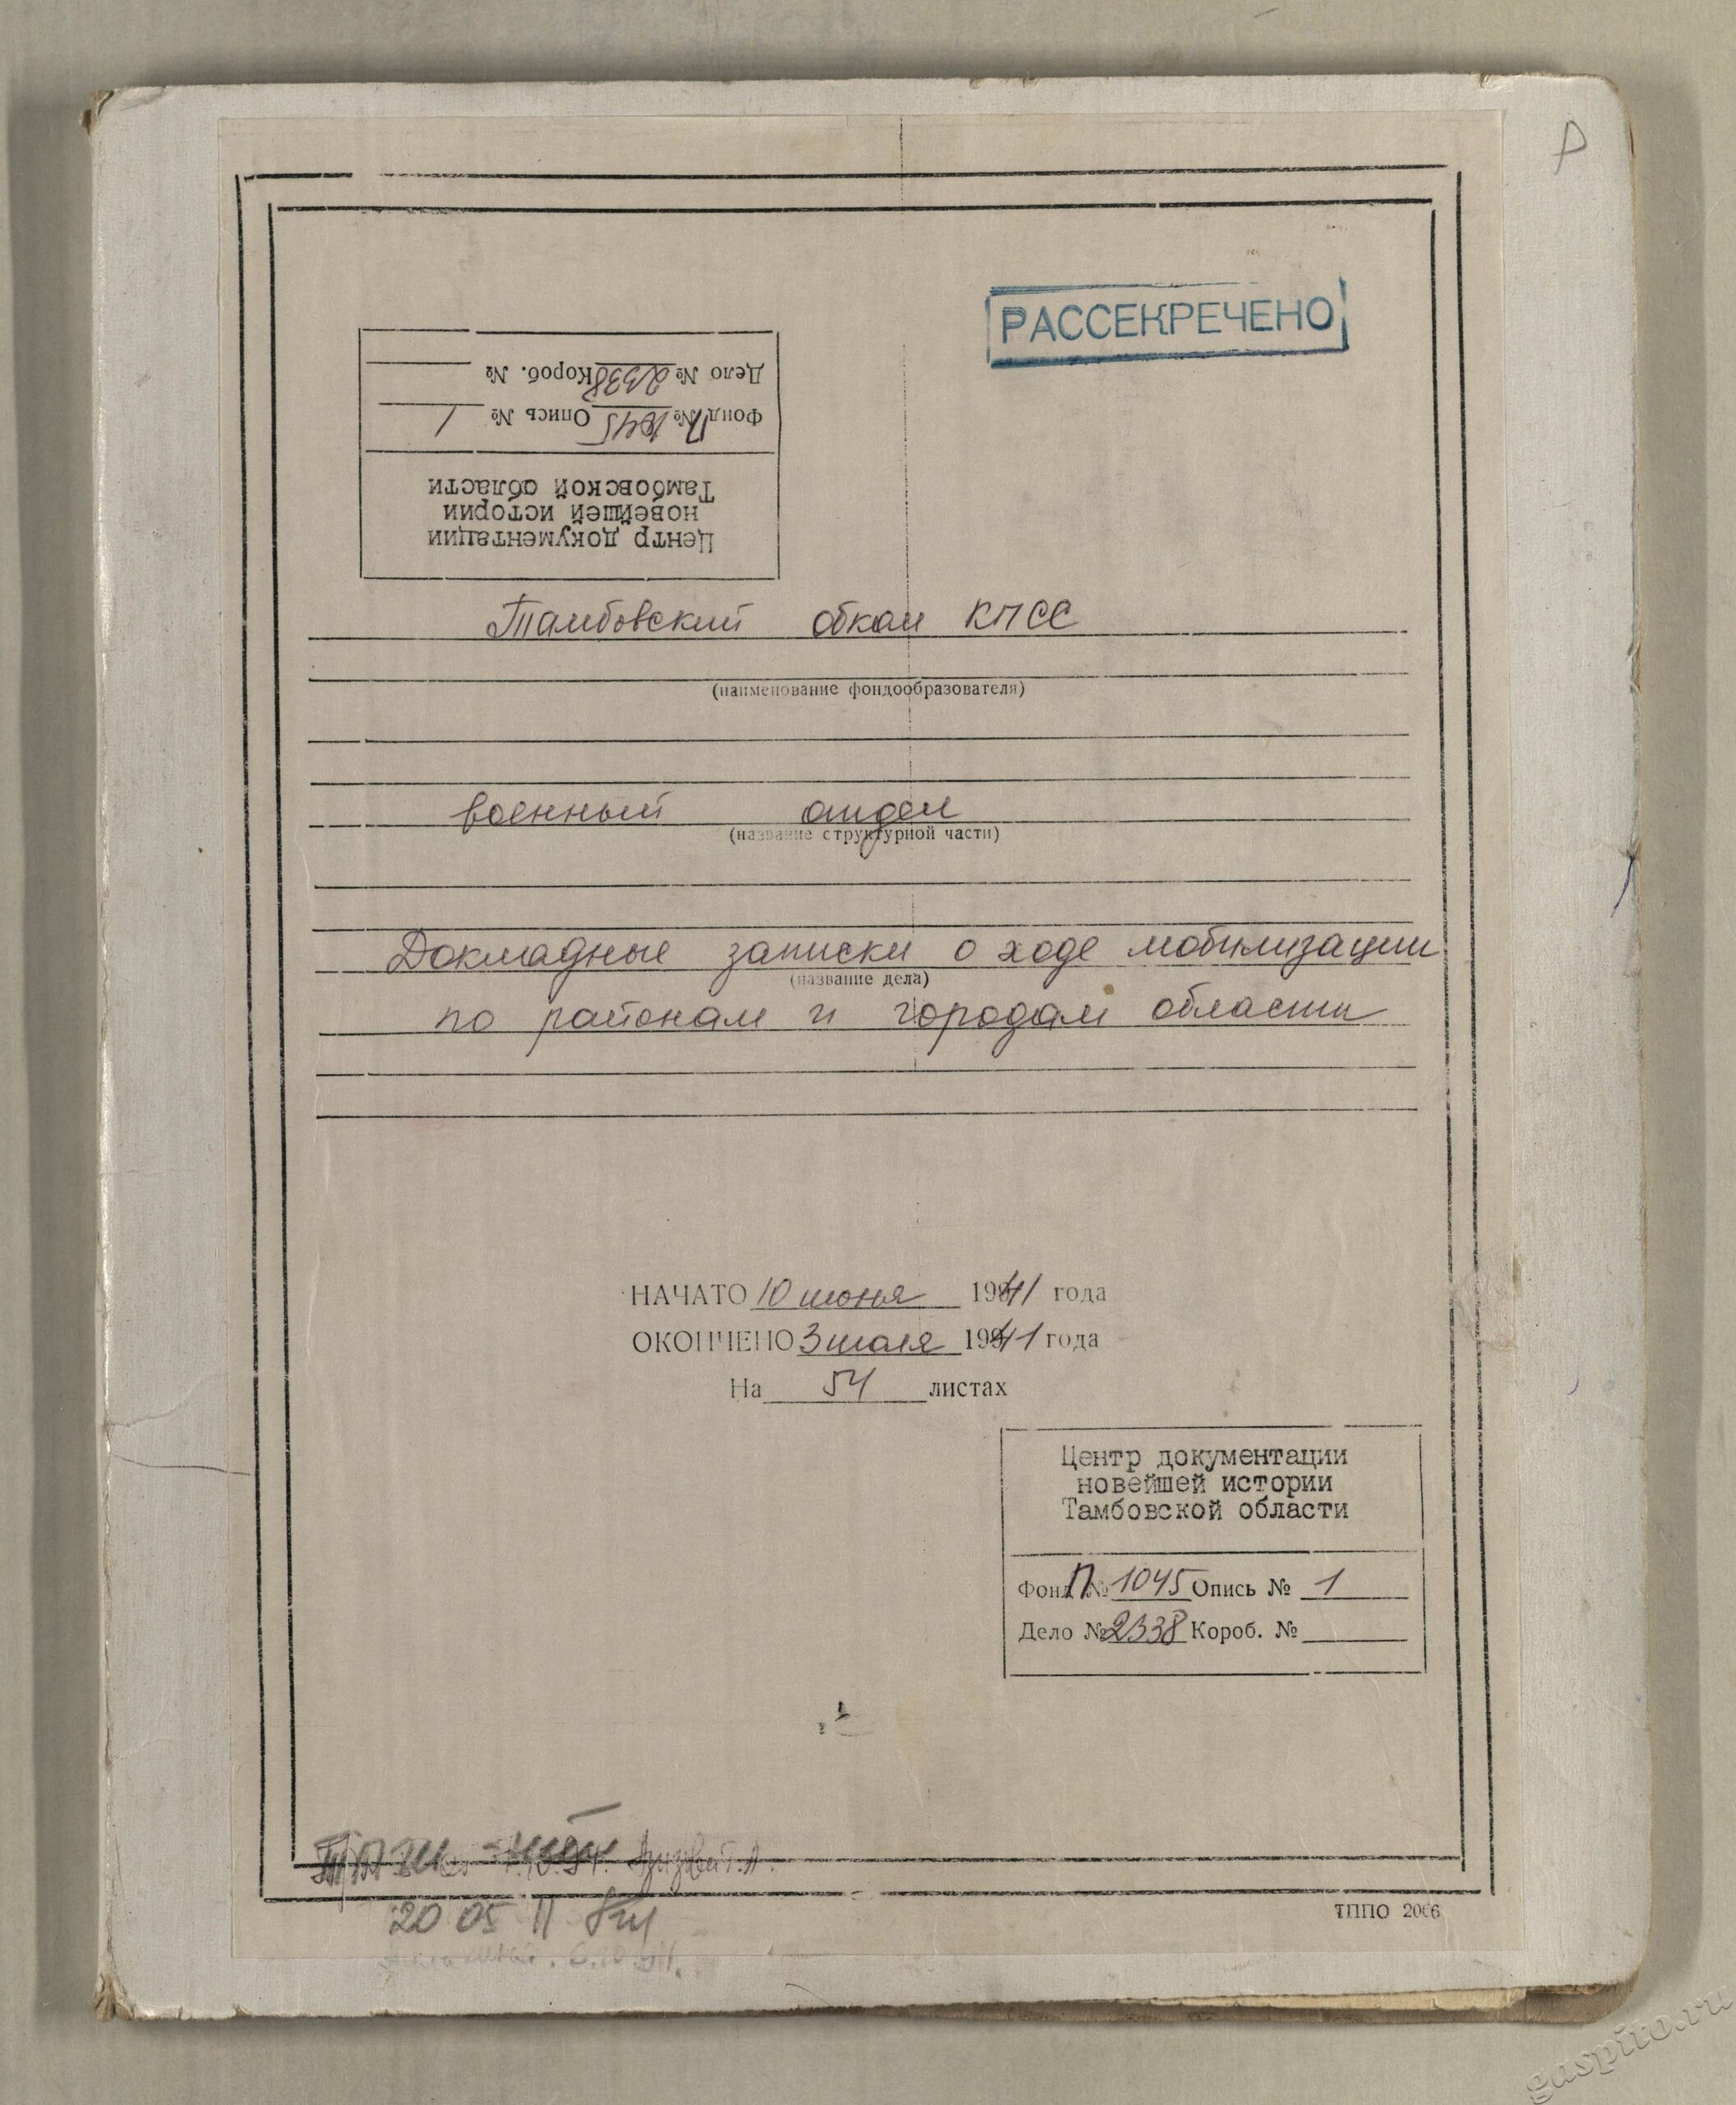 Р
РАССЕКРЕЧЕНО
Центр документации
новейшей истории
Тамбовской области
Фонд П № 1045 Опись № 1
Дело № 2338 Короб. №
Тамбовский обком КПСС
(наименование фондообразователя)
военный отдел
(название структурной части)
Докладные записки о ходе мобилизации
(название дела)
по районам и городам области
НАЧАТО 10 июня 1941 года
ОКОНЧЕНО 3 июля 1941 года
На 54 листах
Центр документации
новейшей истории
Тамбовской области
Фонд П № 1045 Опись № 1
Дело № 2338 Короб. №
20 05 11
ТППО 2006
gaspito.ru